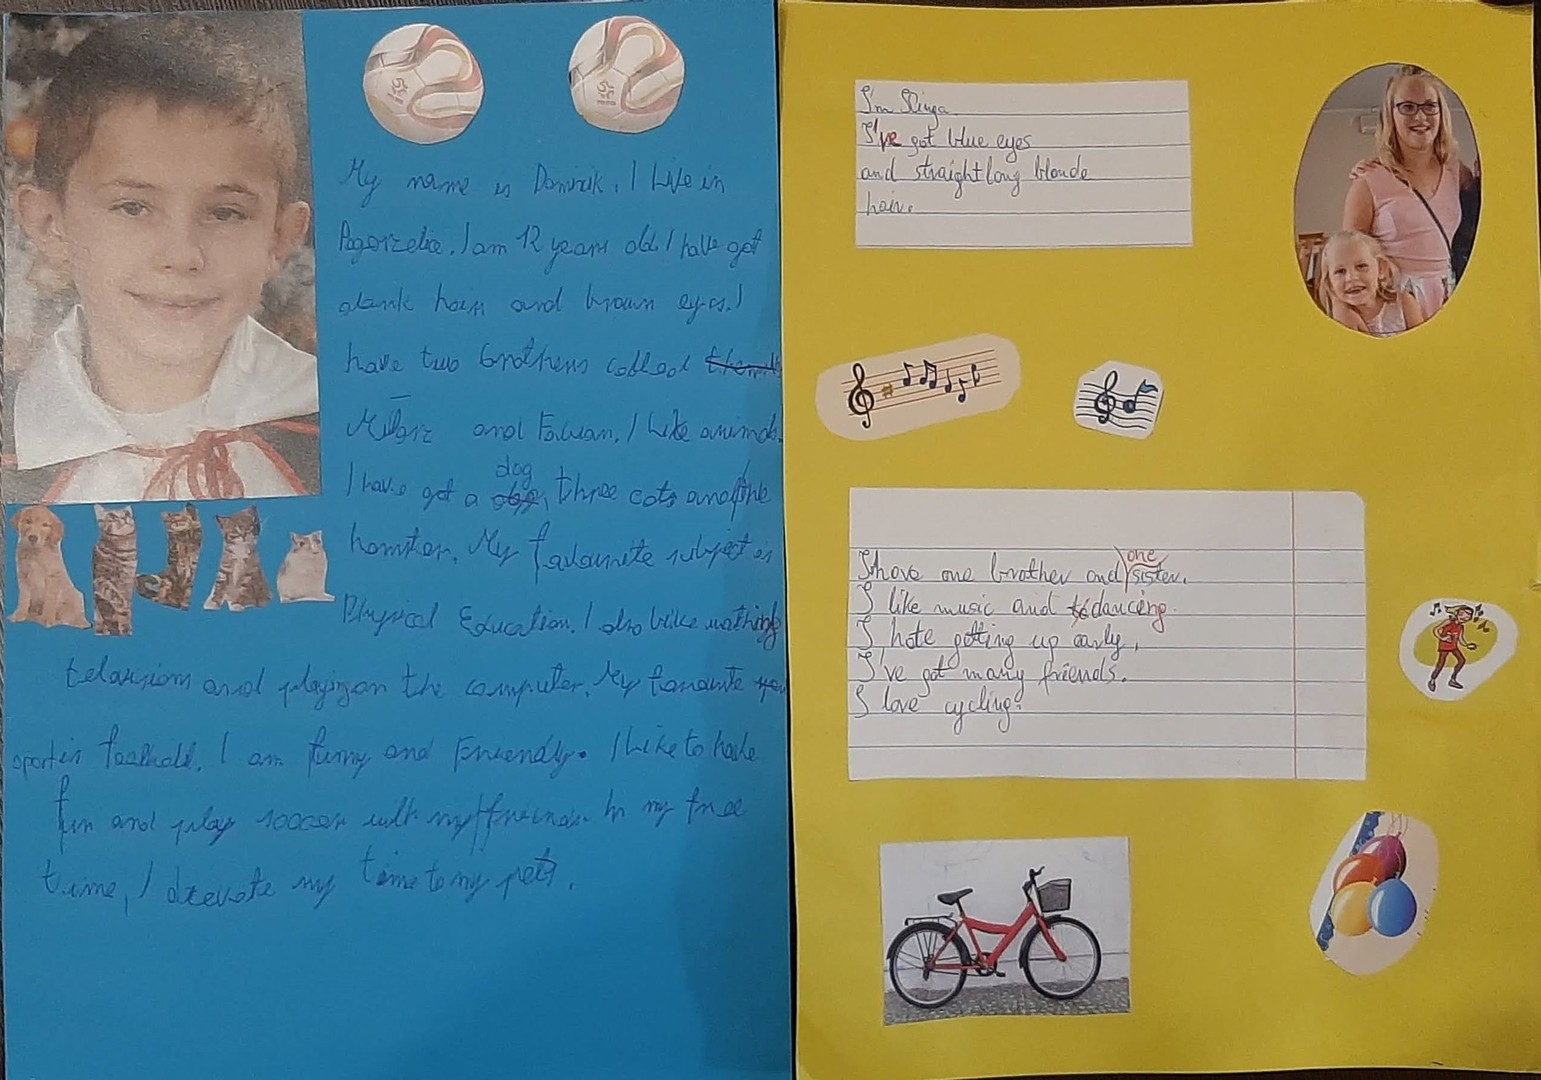 My name is Dominik. I live in
Pogorzelice. I am 12 years old. I have got
dark hair and brown eyes. I
have two brothers called
and Fabian. I like animals.
dog
I have got a three cats and the
hamster. My favourite subject is
Physical Education. I also like wathing
television and playing on the computer. My favourite
sport is football. I am funny and Friendly. I like to have
fun and play soccer with my friends. In my free
time, I devote my time to my pets.
I'm Kinga.
I've got blue eyes
and straight long blonde
hair.
one
I have one brother and sister.
I like music and dancing.
I hate getting up early.
I've got many friends.
I love cycling.